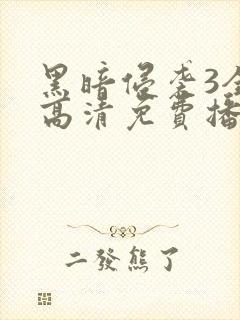 黑暗侵袭3全
高清免費播
二發熊了